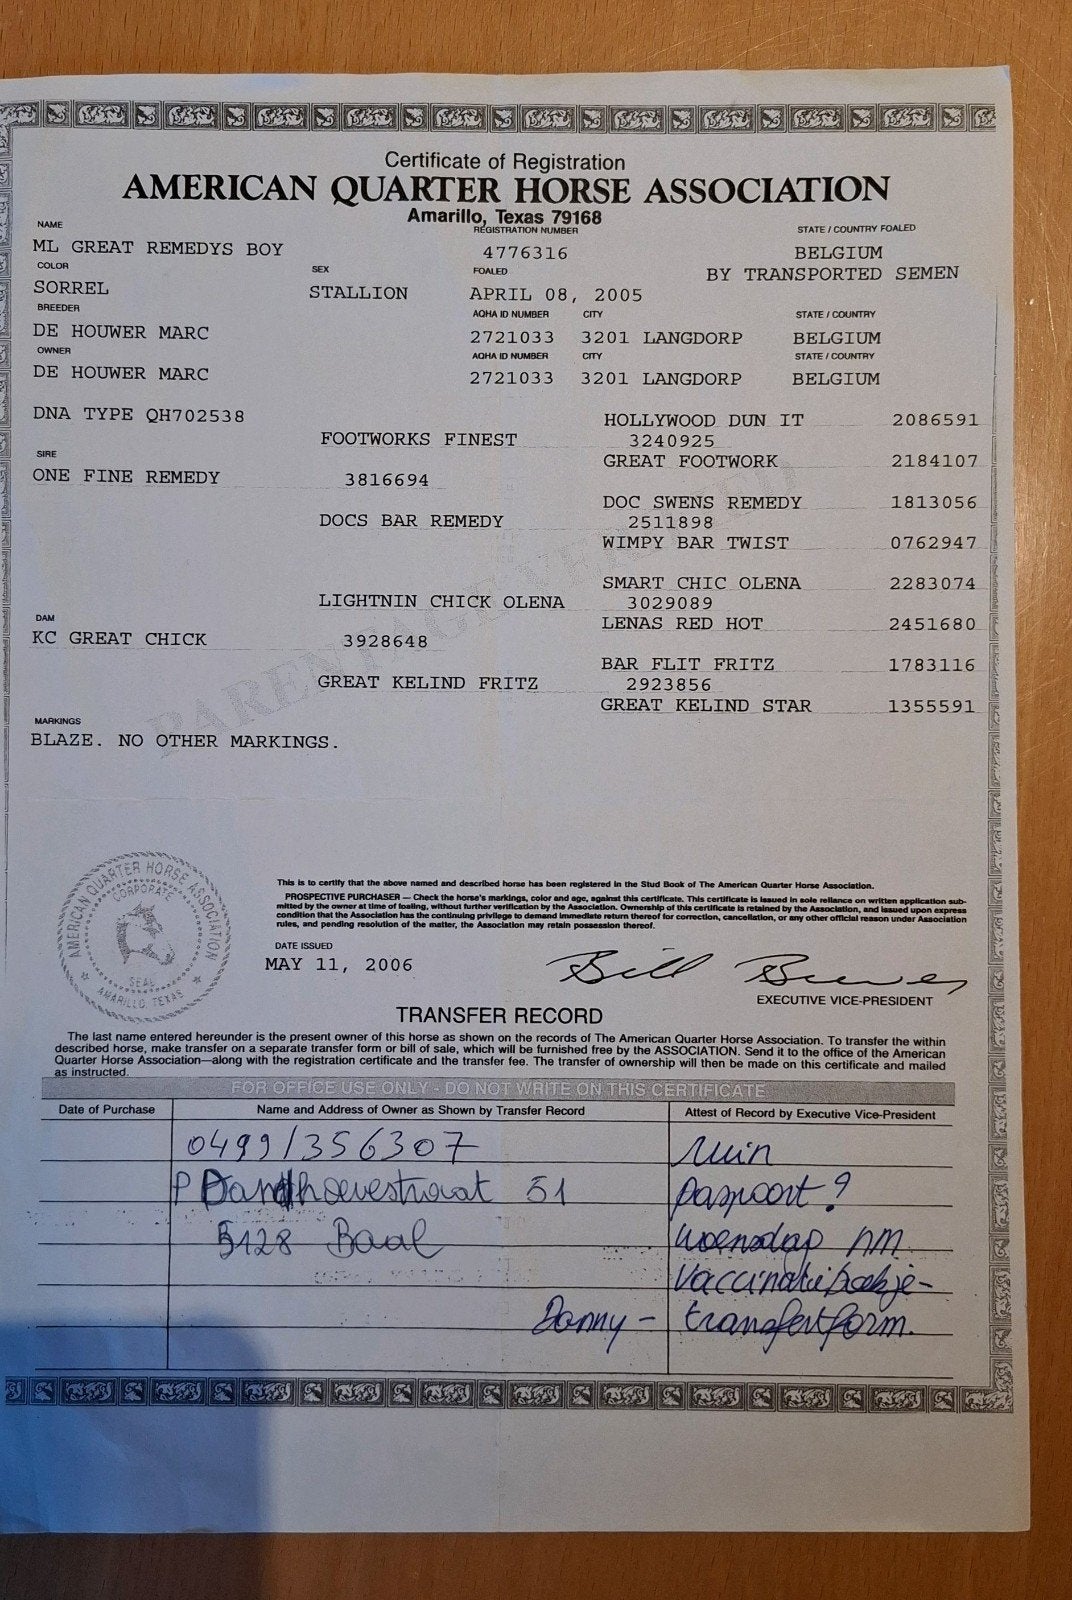 Certificate of Registration
AMERICAN QUARTER HORSE ASSOCIATION
Amarillo, Texas 79168
NAME REGISTRATION NUMBER STATE / COUNTRY FOALED
ML GREAT REMEDYS BOY 4776316 BELGIUM
COLOR SEX FOALED BY TRANSPORTED SEMEN
SORREL STALLION APRIL 08, 2005
BREEDER AQHA ID NUMBER CITY STATE / COUNTRY
DE HOUWER MARC 2721033 3201 LANGDORP BELGIUM
OWNER AQHA ID NUMBER CITY STATE / COUNTRY
DE HOUWER MARC 2721033 3201 LANGDORP BELGIUM
DNA TYPE QH702538 HOLLYWOOD DUN IT 2086591
FOOTWORKS FINEST 3240925
SIRE GREAT FOOTWORK 2184107
ONE FINE REMEDY 3816694
DOC SWENS REMEDY 1813056
DOCS BAR REMEDY 2511898
WIMPY BAR TWIST 0762947
SMART CHIC OLENA 2283074
LIGHTNIN CHICK OLENA 3029089
DAM LENAS RED HOT 2451680
KC GREAT CHICK 3928648
BAR FLIT FRITZ 1783116
GREAT KELIND FRITZ 2923856
GREAT KELIND STAR 1355591
MARKINGS
BLAZE. NO OTHER MARKINGS.
AMERICAN QUARTER HORSE ASSOCIATION
CORPORATE
SEAL
AMARILLO, TEXAS
This is to certify that the above named and described horse has been registered in the Stud Book of The American Quarter Horse Association.
PROSPECTIVE PURCHASER — Check the horse's markings, color and age, against this certificate. This certificate is issued in sole reliance on written application sub-
mitted by the owner at time of foaling, without further verification by the Association. Ownership of this certificate is retained by the Association, and issued upon express
condition that the Association has the continuing privilege to demand immediate return thereof for correction, cancellation, or any other official reason under Association
rules, and pending resolution of the matter, the Association may retain possession thereof.
DATE ISSUED
MAY 11, 2006
Bill Brewer
EXECUTIVE VICE-PRESIDENT
TRANSFER RECORD
The last name entered hereunder is the present owner of this horse as shown on the records of The American Quarter Horse Association. To transfer the within
described horse, make transfer on a separate transfer form or bill of sale, which will be furnished free by the ASSOCIATION. Send it to the office of the American
Quarter Horse Association—along with the registration certificate and the transfer fee. The transfer of ownership will then be made on this certificate and mailed
as instructed.
FOR OFFICE USE ONLY - DO NOT WRITE ON THIS CERTIFICATE
Date of Purchase Name and Address of Owner as Shown by Transfer Record Attest of Record by Executive Vice-President
0499/356307 ruin
51 paspoort?
3128 Baal woensdag nm
vaccinatieboekje-
Danny - transfertform.